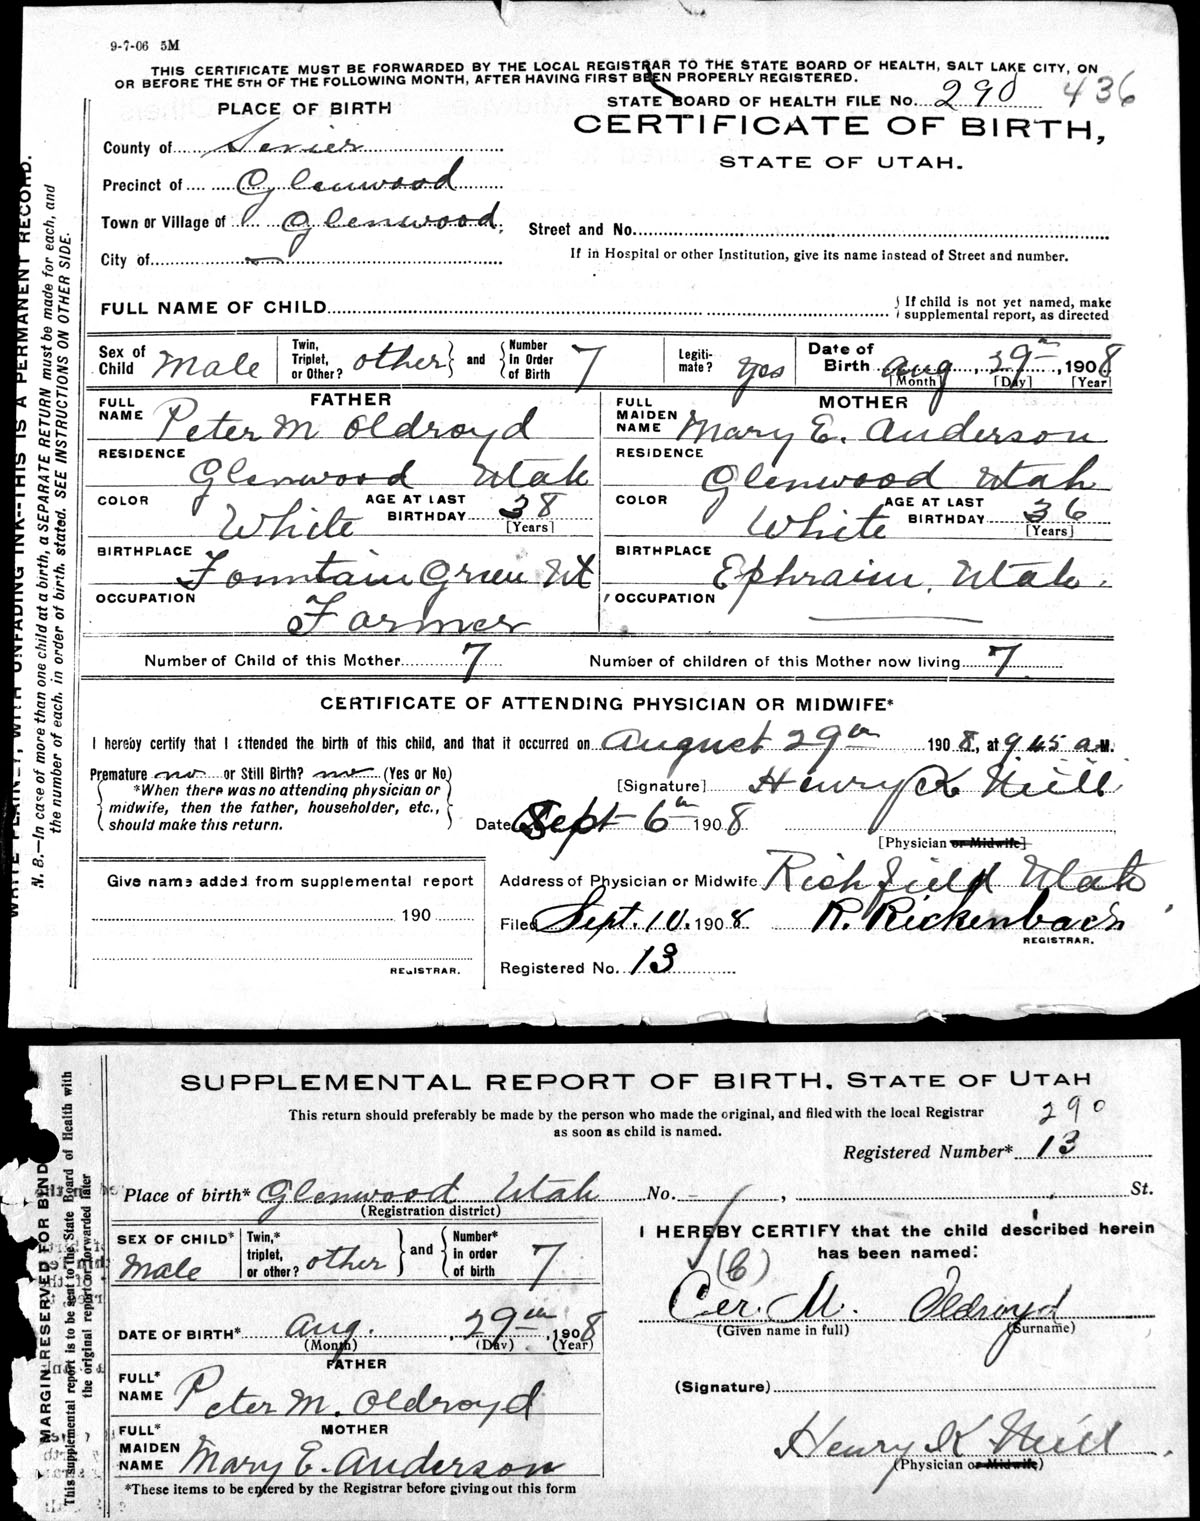 9-7-06 5M
THIS CERTIFICATE MUST BE FORWARDED BY THE LOCAL REGISTRAR TO THE STATE BOARD OF HEALTH, SALT LAKE CITY, ON
OR BEFORE THE 5TH OF THE FOLLOWING MONTH, AFTER HAVING FIRST BEEN PROPERLY REGISTERED.
PLACE OF BIRTH
STATE BOARD OF HEALTH FILE No. 290 436
CERTIFICATE OF BIRTH,
STATE OF UTAH.
County of Sevier
Precinct of Glenwood
Town or Village of Glenwood
Street and No.
City of —
If in Hospital or other Institution, give its name instead of Street and number.
FULL NAME OF CHILD
If child is not yet named, make
supplemental report, as directed
Sex of Child Male Twin, Triplet, or Other? other and Number In Order of Birth 7 Legiti-mate? Yes Date of Birth Aug 29th 1908
[Month] [Day] [Year]
FATHER MOTHER
FULL NAME Peter M Oldroyd FULL MAIDEN NAME Mary E. Anderson
RESIDENCE Glenwood Utah RESIDENCE Glenwood Utah
COLOR White AGE AT LAST BIRTHDAY 38 [Years] COLOR White AGE AT LAST BIRTHDAY 36 [Years]
BIRTHPLACE Fountain Green Ut BIRTHPLACE Ephraim, Utah.
OCCUPATION Farmer OCCUPATION —
Number of Child of this Mother 7 Number of children of this Mother now living 7
CERTIFICATE OF ATTENDING PHYSICIAN OR MIDWIFE*
I hereby certify that I attended the birth of this child, and that it occurred on August 29th 1908, at 9 45 a M.
Premature no or Still Birth? no (Yes or No)
[Signature] Henry K Neill
*When there was no attending physician or
midwife, then the father, householder, etc.,
should make this return.
Date Sept 6th 1908
[Physician or Midwife]
Give name added from supplemental report
Address of Physician or Midwife Richfield Utah
190
Filed Sept. 10. 1908 R. Rickenbach
REGISTRAR.
REGISTRAR.
Registered No. 13
WRITE PLAINLY, WITH UNFADING INK--THIS IS A PERMANENT RECORD.
N. B.—In case of more than one child at a birth, a SEPARATE RETURN must be made for each, and
the number of each, in order of birth, stated. SEE INSTRUCTIONS ON OTHER SIDE.
SUPPLEMENTAL REPORT OF BIRTH, STATE OF UTAH
This return should preferably be made by the person who made the original, and filed with the local Registrar
as soon as child is named.
290
Registered Number* 13
Place of birth* Glenwood Utah No. , St.
(Registration district)
SEX OF CHILD* Male Twin,* triplet, or other? other and Number* in order of birth 7
I HEREBY CERTIFY that the child described herein
has been named:
(C)
Cer. M. Oldroyd
(Given name in full) (Surname)
DATE OF BIRTH* Aug. 29th, 1908
(Month) (Day) (Year)
FATHER
FULL* NAME Peter M. Oldroyd
(Signature)
MOTHER
FULL* MAIDEN NAME Mary E. Anderson
Henry K Neill
(Physician or Midwife)
*These items to be entered by the Registrar before giving out this form
MARGIN RESERVED FOR BIND
This supplemental report is to be sent to the State Board of Health with
the original report or forwarded later